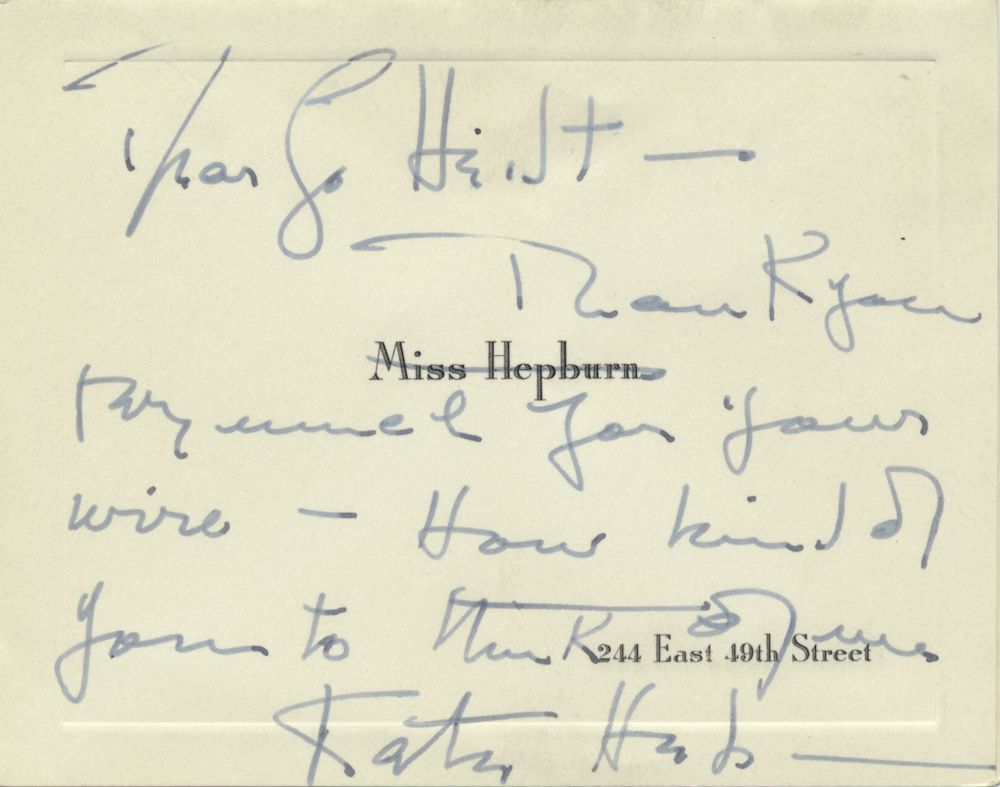 Dear Jo Heidt —
Thank you
Miss Hepburn
very much for your
wire — How kind of
you to think of me
244 East 49th Street
Kate Hep —